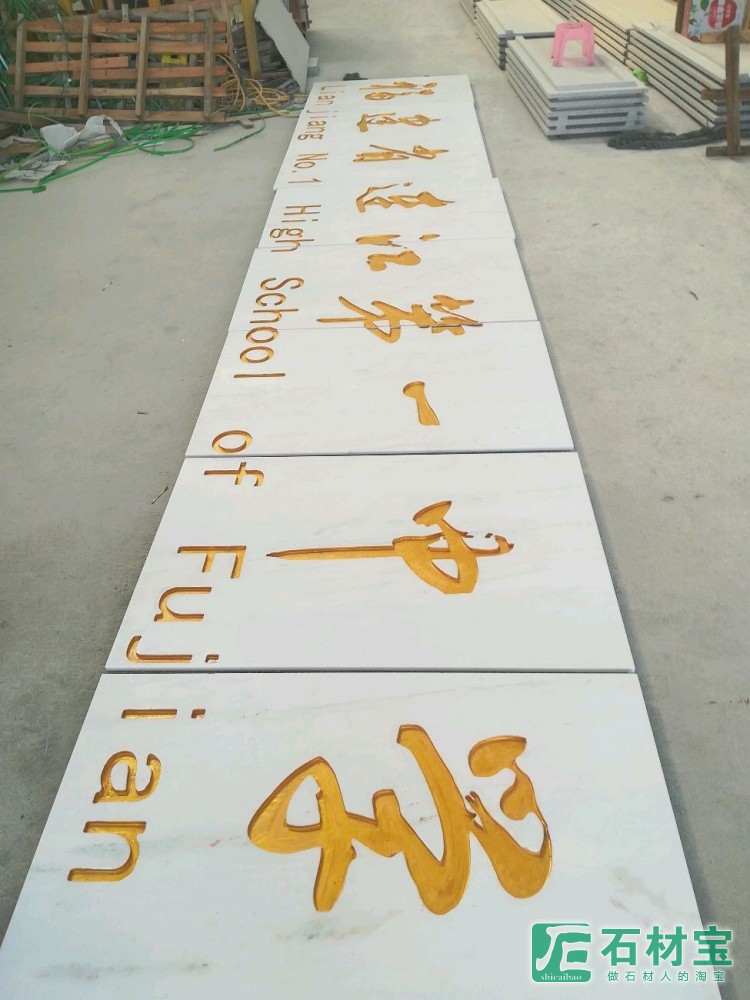 福建省连江第一中学
Lianjiang No.1 High School of Fujian
石材宝
shicaibao
做石材人的淘宝